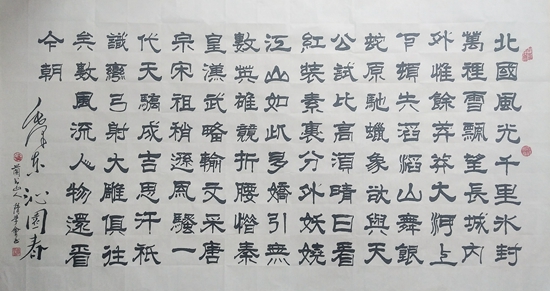 北國風光千里氷封
萬裡雪飄望長城内
外惟餘莽莽大河上
下頓失滔滔山舞銀
蛇原馳蠟象欲與天
公試比高須晴日看
紅裝素裹分外妖嬈
江山如此多嬌引無
數英雄競折腰惜秦
皇漢武略輸文采唐
宗宋祖稍遜風騷一
代天驕成吉思汗祇
識彎弓射大雕俱往
矣數風流人物還看
今朝
毛澤東沁園春